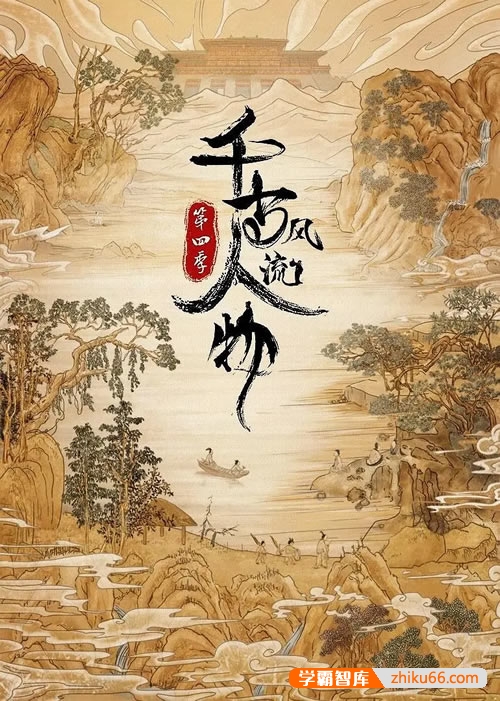 千古风流人物
第四季
学霸智库
zhiku66.com